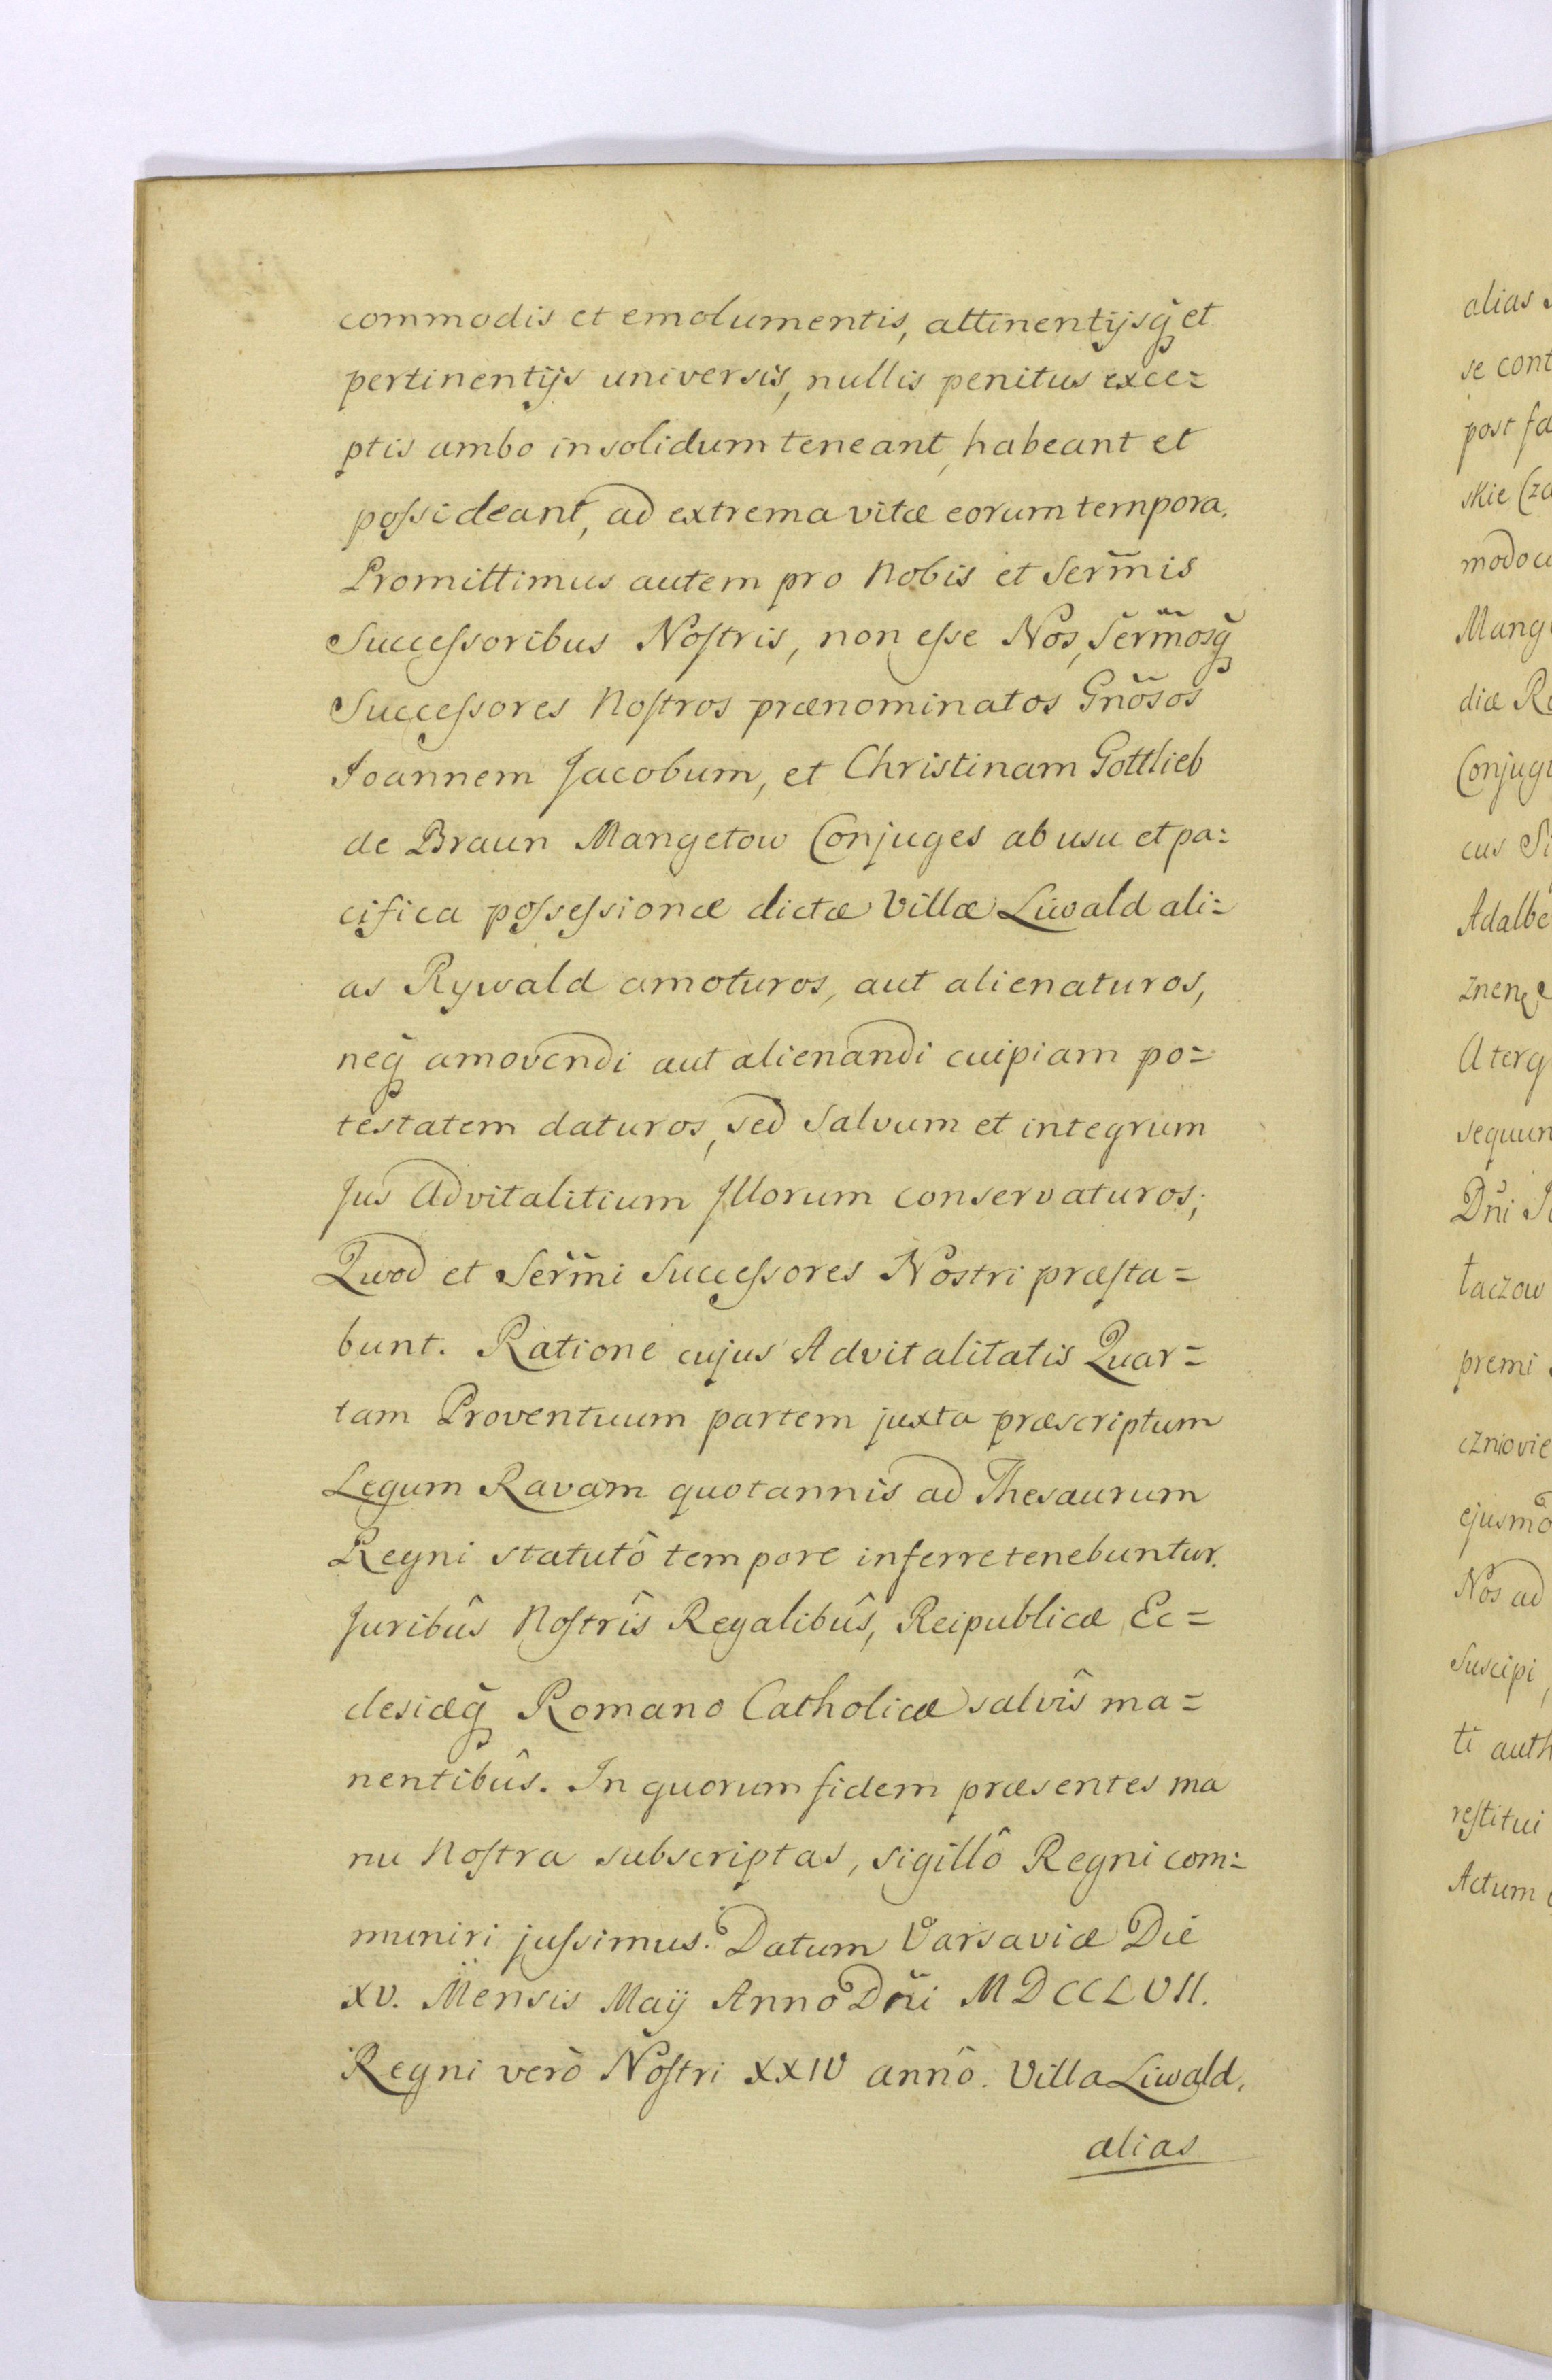 commodis et emolumentis, attinentijsq̃ et
pertinentijs universis, nullis penitus exce=
ptis ambo in solidum teneant, habeant et
poſsideant, ad extrema vitæ eorum tempora.
Promittimus autem pro Nobis et Serm̃is
Succeſsoribus Noſtris, non eſse Nos, Serm̃osq̃
Succeſsores Noſtros prænominatos Gñosos
Joannem Jacobum, et Christinam Gottlieb
de Braun Mangetow Conjuges ab usu et pa=
cifica poſseſsione dictæ Villæ Liwald ali=
as Rywald amoturos, aut alienaturos,
neq̃ amovendi aut alienandi cuipiam po=
testatem daturos, sed Salvum et integrum
Jus Advitalitium Jllorum conservaturos;
Quod et Serm̃i Succeſsores Nostri præſta=
bunt. Ratione cujus Advitalitatis Quar=
tam Proventuum partem juxta præscriptum
Legum Ravam quotannis ad Thesaurum
Regni statutô tempore inferre tenebuntur.
Juribûs Noſtrîs Regalibûs, Reipublicæ Ec=
clesiæq̃ Romano Catholicæ salvîs ma=
nentibûs. In quorum fidem præsentes ma
nu Noſtra subscriptas, sigillô Regni com=
muniri juſsimus. Datum Varsaviæ Die
XV. Mensis Maÿ Anno Dñi MDCCLVII.
Regni verò Noſtri XXIV annô. Villa Liwald,
alias
alias
se cont
post fa
skie (za
modo
Mang
diæ R
Conjug
cus
Adalbe
Uterq
sequun
Dñi
taczow
premi
czniovie
ejusmo
Nos ad
Suscipi
ti auth
reſtitui
Actum